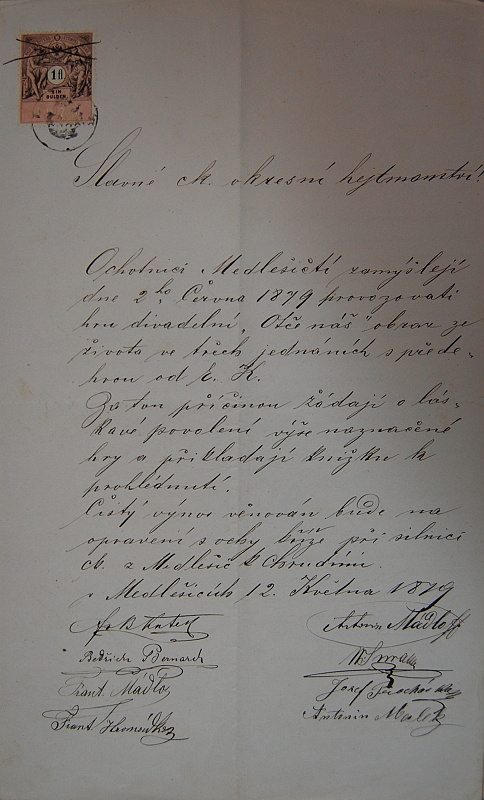 1 fl
EIN
GULDEN
Slavné ck. okresní hejtmanství!
Ochotníci Medlešičtí zamýšlejí
dne 2ho Června 1879 provozovati
hru divadelní „Otče náš" obraz ze
života ve třech jednáních s přede-
hrou od E. K.
Za tou příčinou žádají o lás-
kavé povolení výše naznačené
hry a přikládají knížku k
prohlédnutí.
Čistý výnos věnován bude na
opravení sochy kříže při silnici
ck. z Medlešic k Chrudimi.
v Medlešicích 12. Května 1879
Antonín Mádlo
Bedřich Bernard
Frant. Mádlo
Josef
Frant.
Antonín